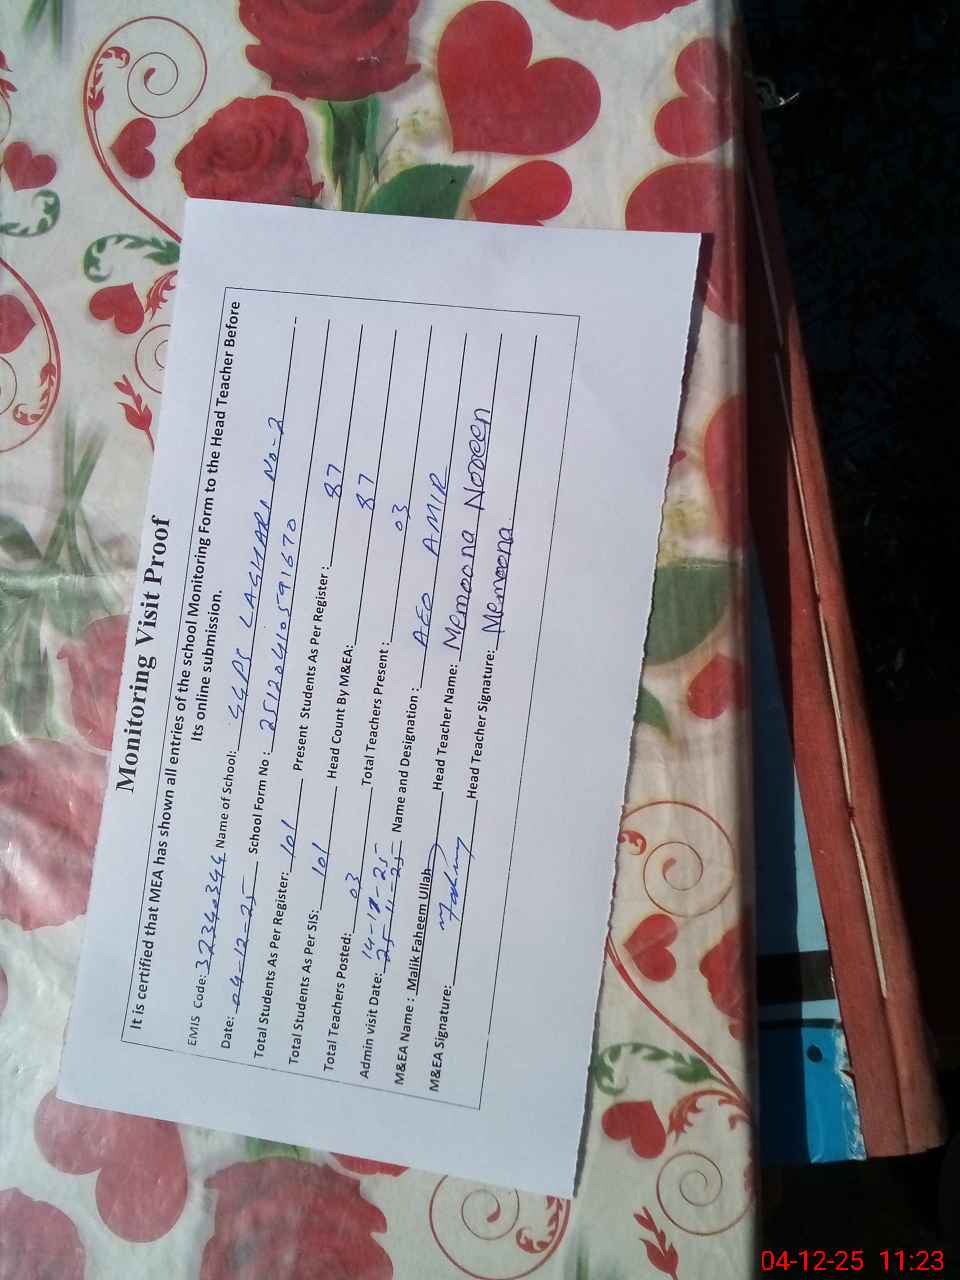 Monitoring Visit Proof
It is certified that MEA has shown all entries of the school Monitoring Form to the Head Teacher Before
Its online submission.
EMIS Code: 32340344 Name of School: GGPS LAGHARI No-2
Date: 04-12-25 School Form No: 2512041059 1670
Total Students As Per Register: 101 Present Students As Per Register: 87
Total Students As Per SIS: 101 Head Count By M&EA: 87
Total Teachers Posted: 03 Total Teachers Present: 03
Admin visit Date: 25-11-25 Name and Designation: AEO AMIR
M&EA Name: Malik Faheem Ullah Head Teacher Name: Memoona Noreen
M&EA Signature: Head Teacher Signature: Memoona.
04-12-25 11:23